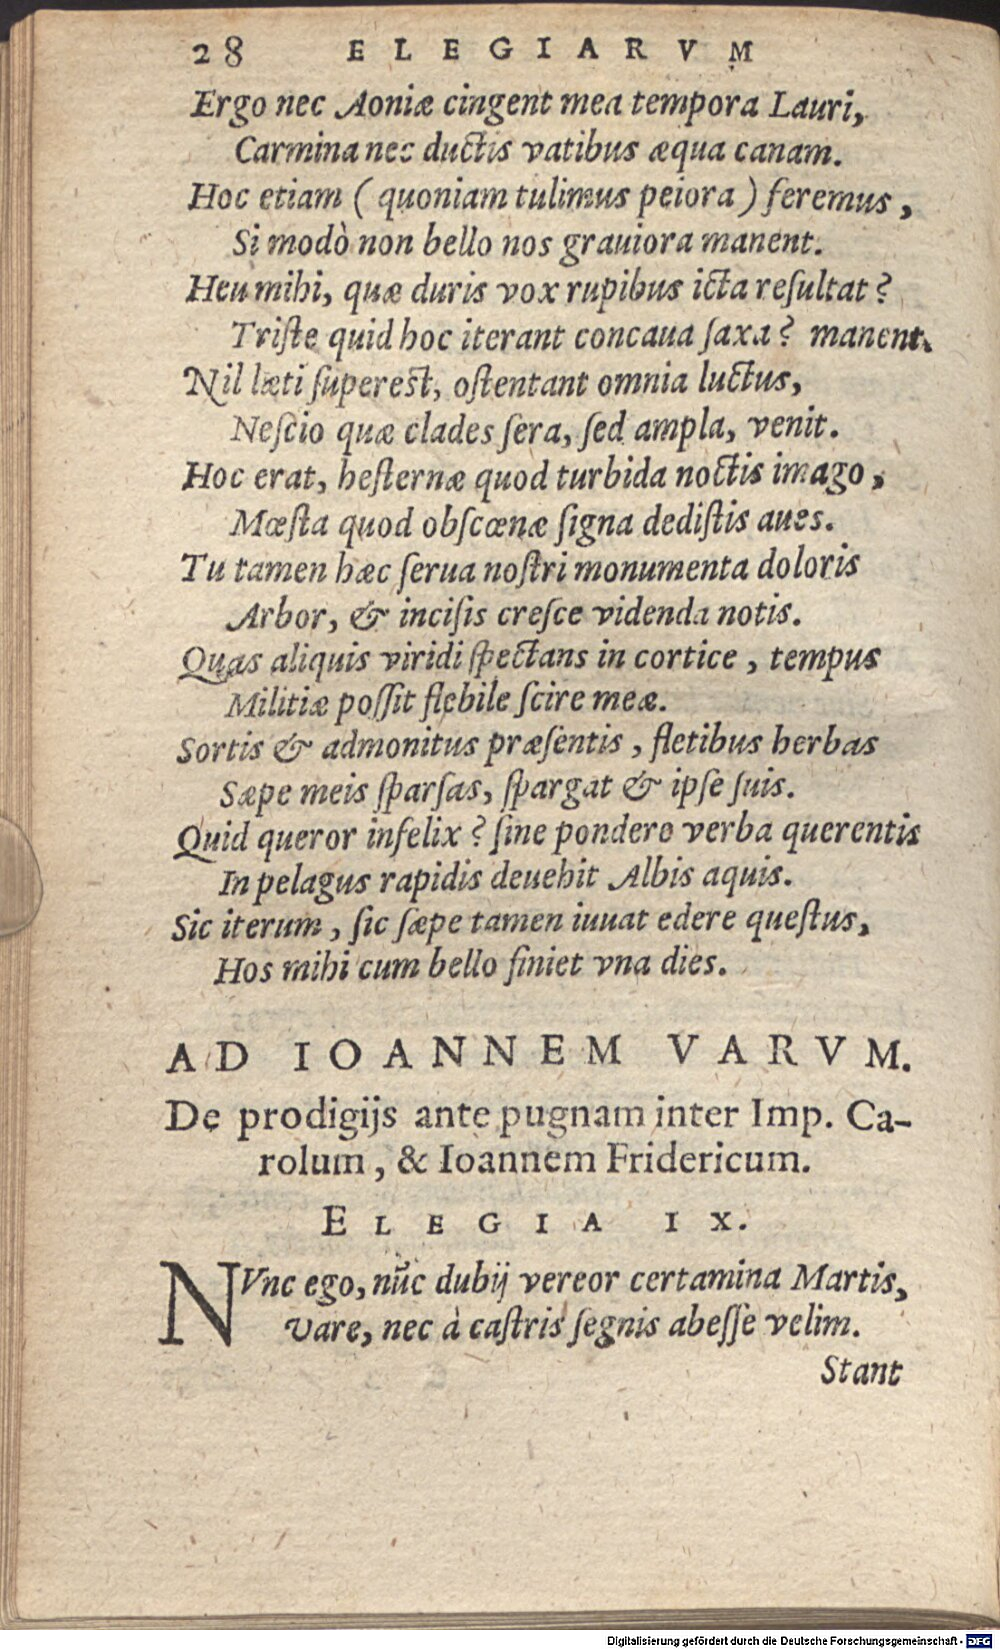 28 ELEGIARVM
Ergo nec Aoniæ cingent mea tempora Lauri,
Carmina nec ductis vatibus æqua canam.
Hoc etiam ( quoniam tulimus peiora ) feremus ,
Si modò non bello nos grauiora manent.
Heu mihi, quæ duris vox rupibus icta reſultat ?
Triſte quid hoc iterant concaua ſaxa ? manent.
Nil læti ſupereſt, oſtentant omnia luctus,
Neſcio quæ clades ſera, ſed ampla, venit.
Hoc erat, heſternæ quod turbida noctis imago ,
Mœſta quod obſcœnæ ſigna dediſtis aues.
Tu tamen hæc ſerua noſtri monumenta doloris
Arbor, & inciſis creſce videnda notis.
Quas aliquis viridi ſpectans in cortice , tempus
Militiæ poſſit flebile ſcire meæ.
Sortis & admonitus præſentis , fletibus herbas
Sæpe meis ſparſas, ſpargat & ipſe ſuis.
Quid queror infelix ? ſine pondere verba querentis
In pelagus rapidis deuehit Albis aquis.
Sic iterum , ſic ſæpe tamen iuuat edere queſtus,
Hos mihi cum bello finiet vna dies.
AD IOANNEM VARVM.
De prodigijs ante pugnam inter Imp. Ca-
rolum , & Ioannem Fridericum.
ELEGIA IX.
NVnc ego, nũc dubij vereor certamina Martis,
Vare, nec à caſtris ſegnis abeſſe velim.
Stant
Digitalisierung gefördert durch die Deutsche Forschungsgemeinschaft - DFG